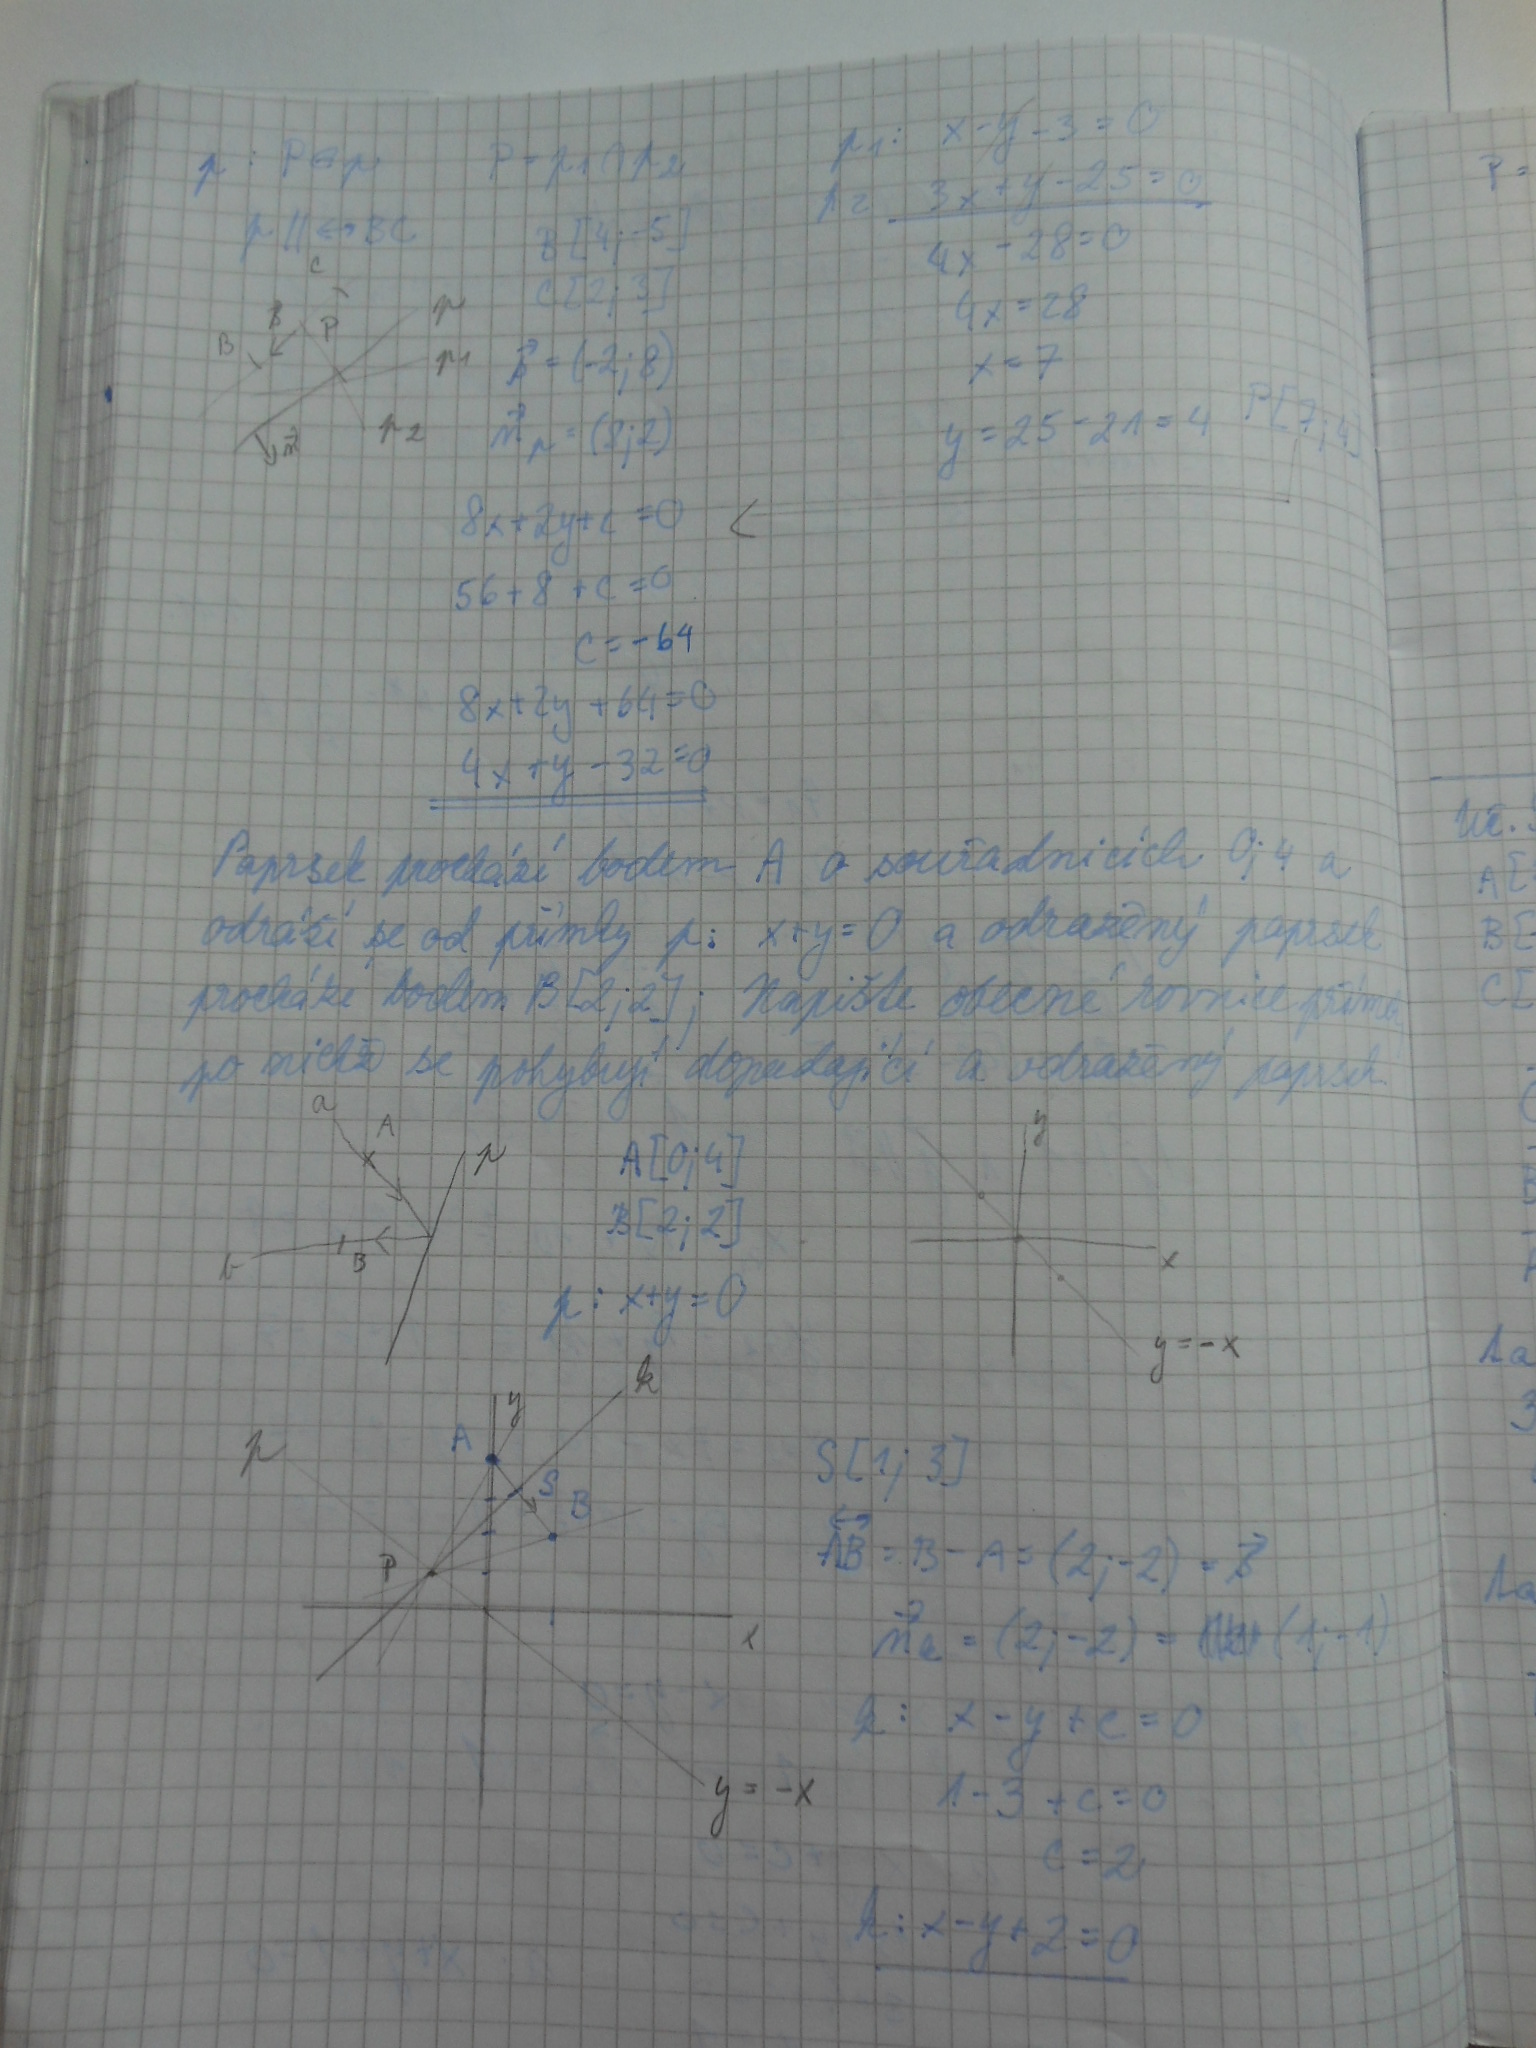 p: P∈p P=p₁∩p₂
p || ↔BC B[4;-5]
C[2;3]
C
B P p
B p₁
p₂
s⃗=(-2;8)
n⃗p=(8;2)
p₁: x-y-3=0
p₂ 3x+y-25=0
4x-28=0
4x=28
x=7
y=25-21=4 P[7;4]
8x+2y+c=0
56+8+c=0
c=-64
8x+2y+64=0
4x+y-32=0
Paprsek prochází bodem A o souřadnicích 0;4 a
odráží se od přímky p: x+y=0 a odražený paprsek
prochází bodem B[2;2]; Napište obecné rovnice přímek
po nichž se pohybují dopadající a odražený paprsek.
a A p
b B
A[0;4]
B[2;2]
p: x+y=0
y
x
y=-x
k
y
p A S B
P
x
y=-x
S[1;3]
AB=B-A=(2;-2)=s⃗
n⃗k=(2;-2)= (1;-1)
k: x-y+c=0
1-3+c=0
c=2
k: x-y+2=0
P=
A[
B[
C[
1a
3
1a